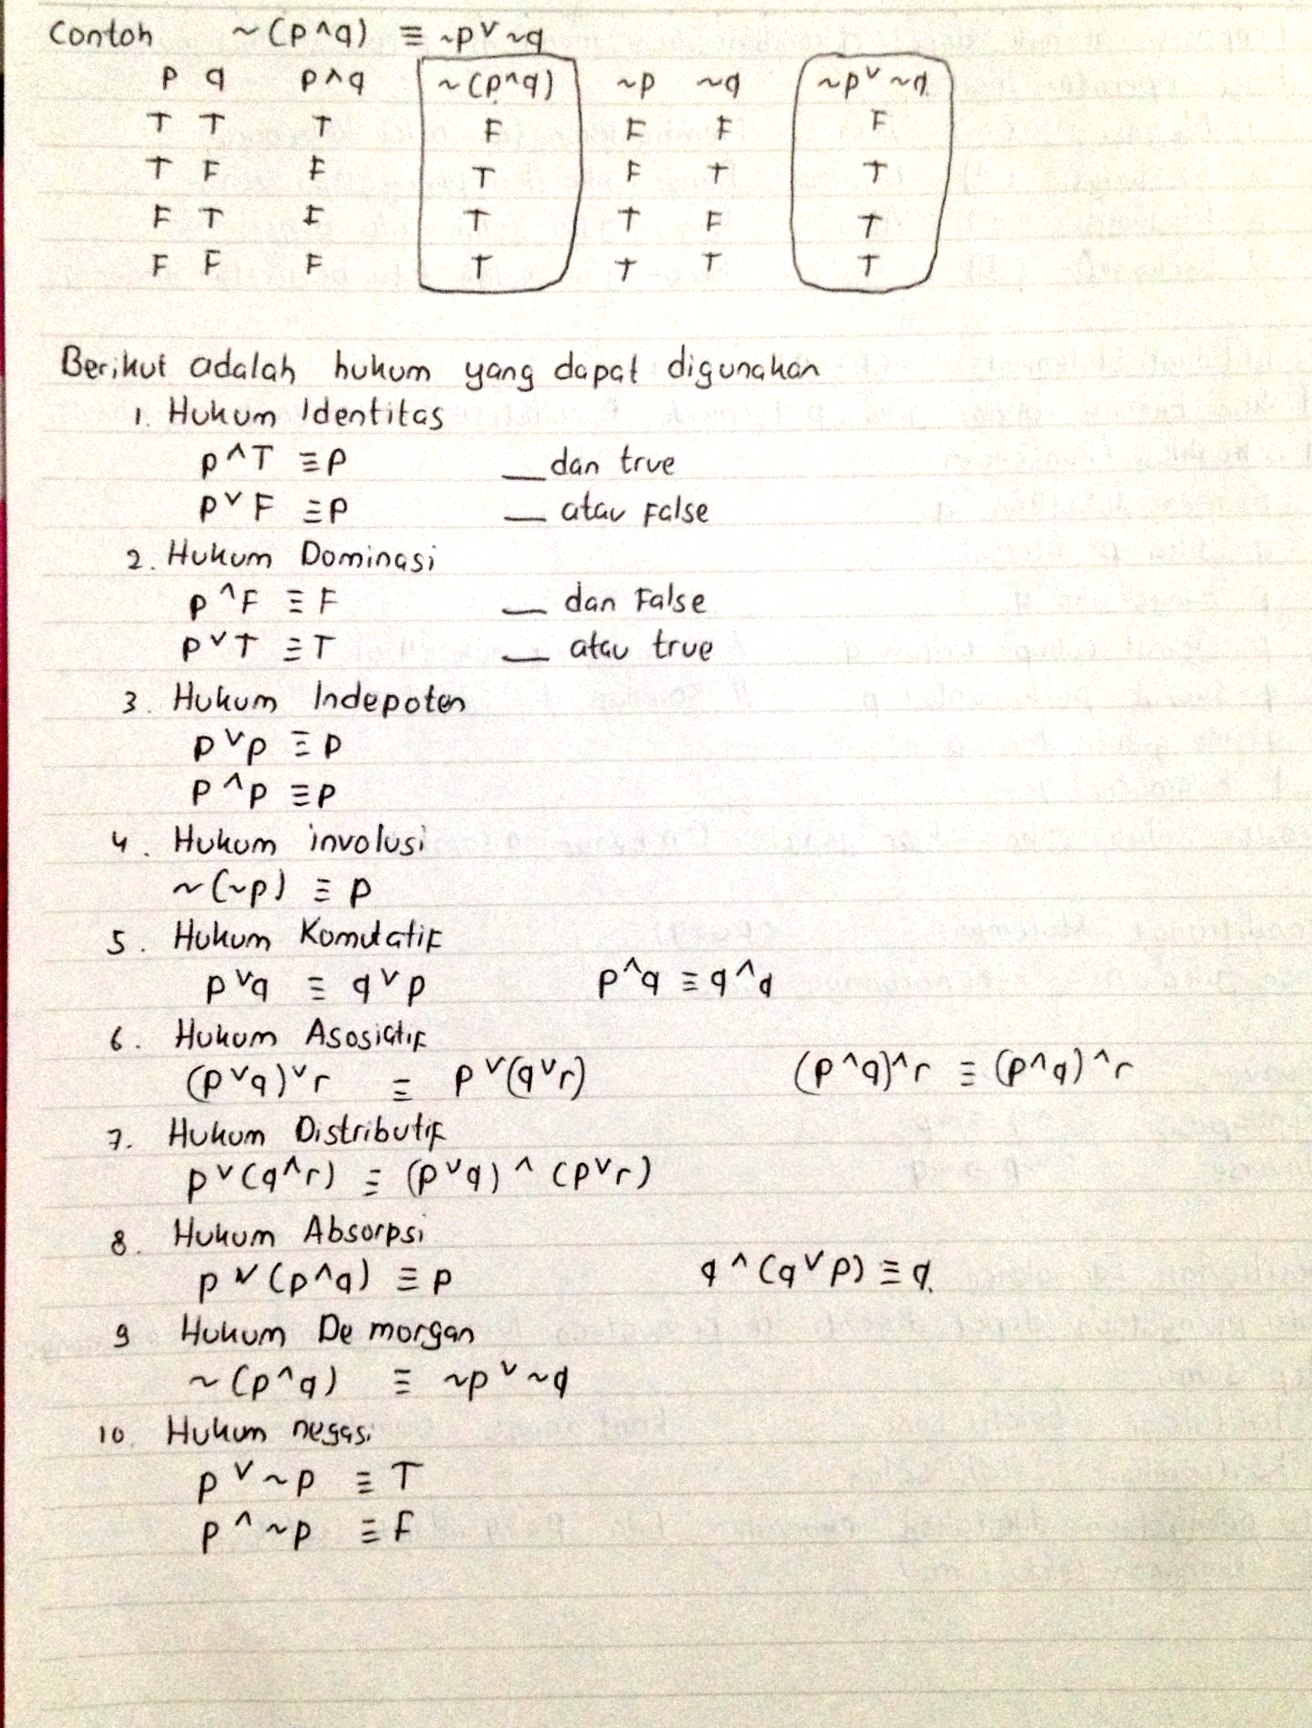 Contoh ~(p^q) ≡ ~p v ~q
p q p^q ~(p^q) ~p ~q ~p v ~q
T T T F F F F
T F F T F T T
F T F T T F T
F F F T T T T
Berikut adalah hukum yang dapat digunakan
1. Hukum Identitas
p ^ T ≡ p __ dan true
p v F ≡ p __ atau False
2. Hukum Dominasi
p ^ F ≡ F __ dan False
p v T ≡ T __ atau true
3. Hukum Indepoten
p v p ≡ p
p ^ p ≡ p
4. Hukum involusi
~(~p) ≡ p
5. Hukum Komutatif
p v q ≡ q v p p ^ q ≡ q ^ q
6. Hukum Asosiatif
(p v q) v r ≡ p v (q v r) (p ^ q) ^ r ≡ (p ^ q) ^ r
7. Hukum Distributif
p v (q ^ r) ≡ (p v q) ^ (p v r)
8. Hukum Absorpsi
p v (p ^ q) ≡ p q ^ (q v p) ≡ q.
9 Hukum De morgan
~(p ^ q) ≡ ~p v ~q
10. Hukum negasi
p v ~p ≡ T
p ^ ~p ≡ F